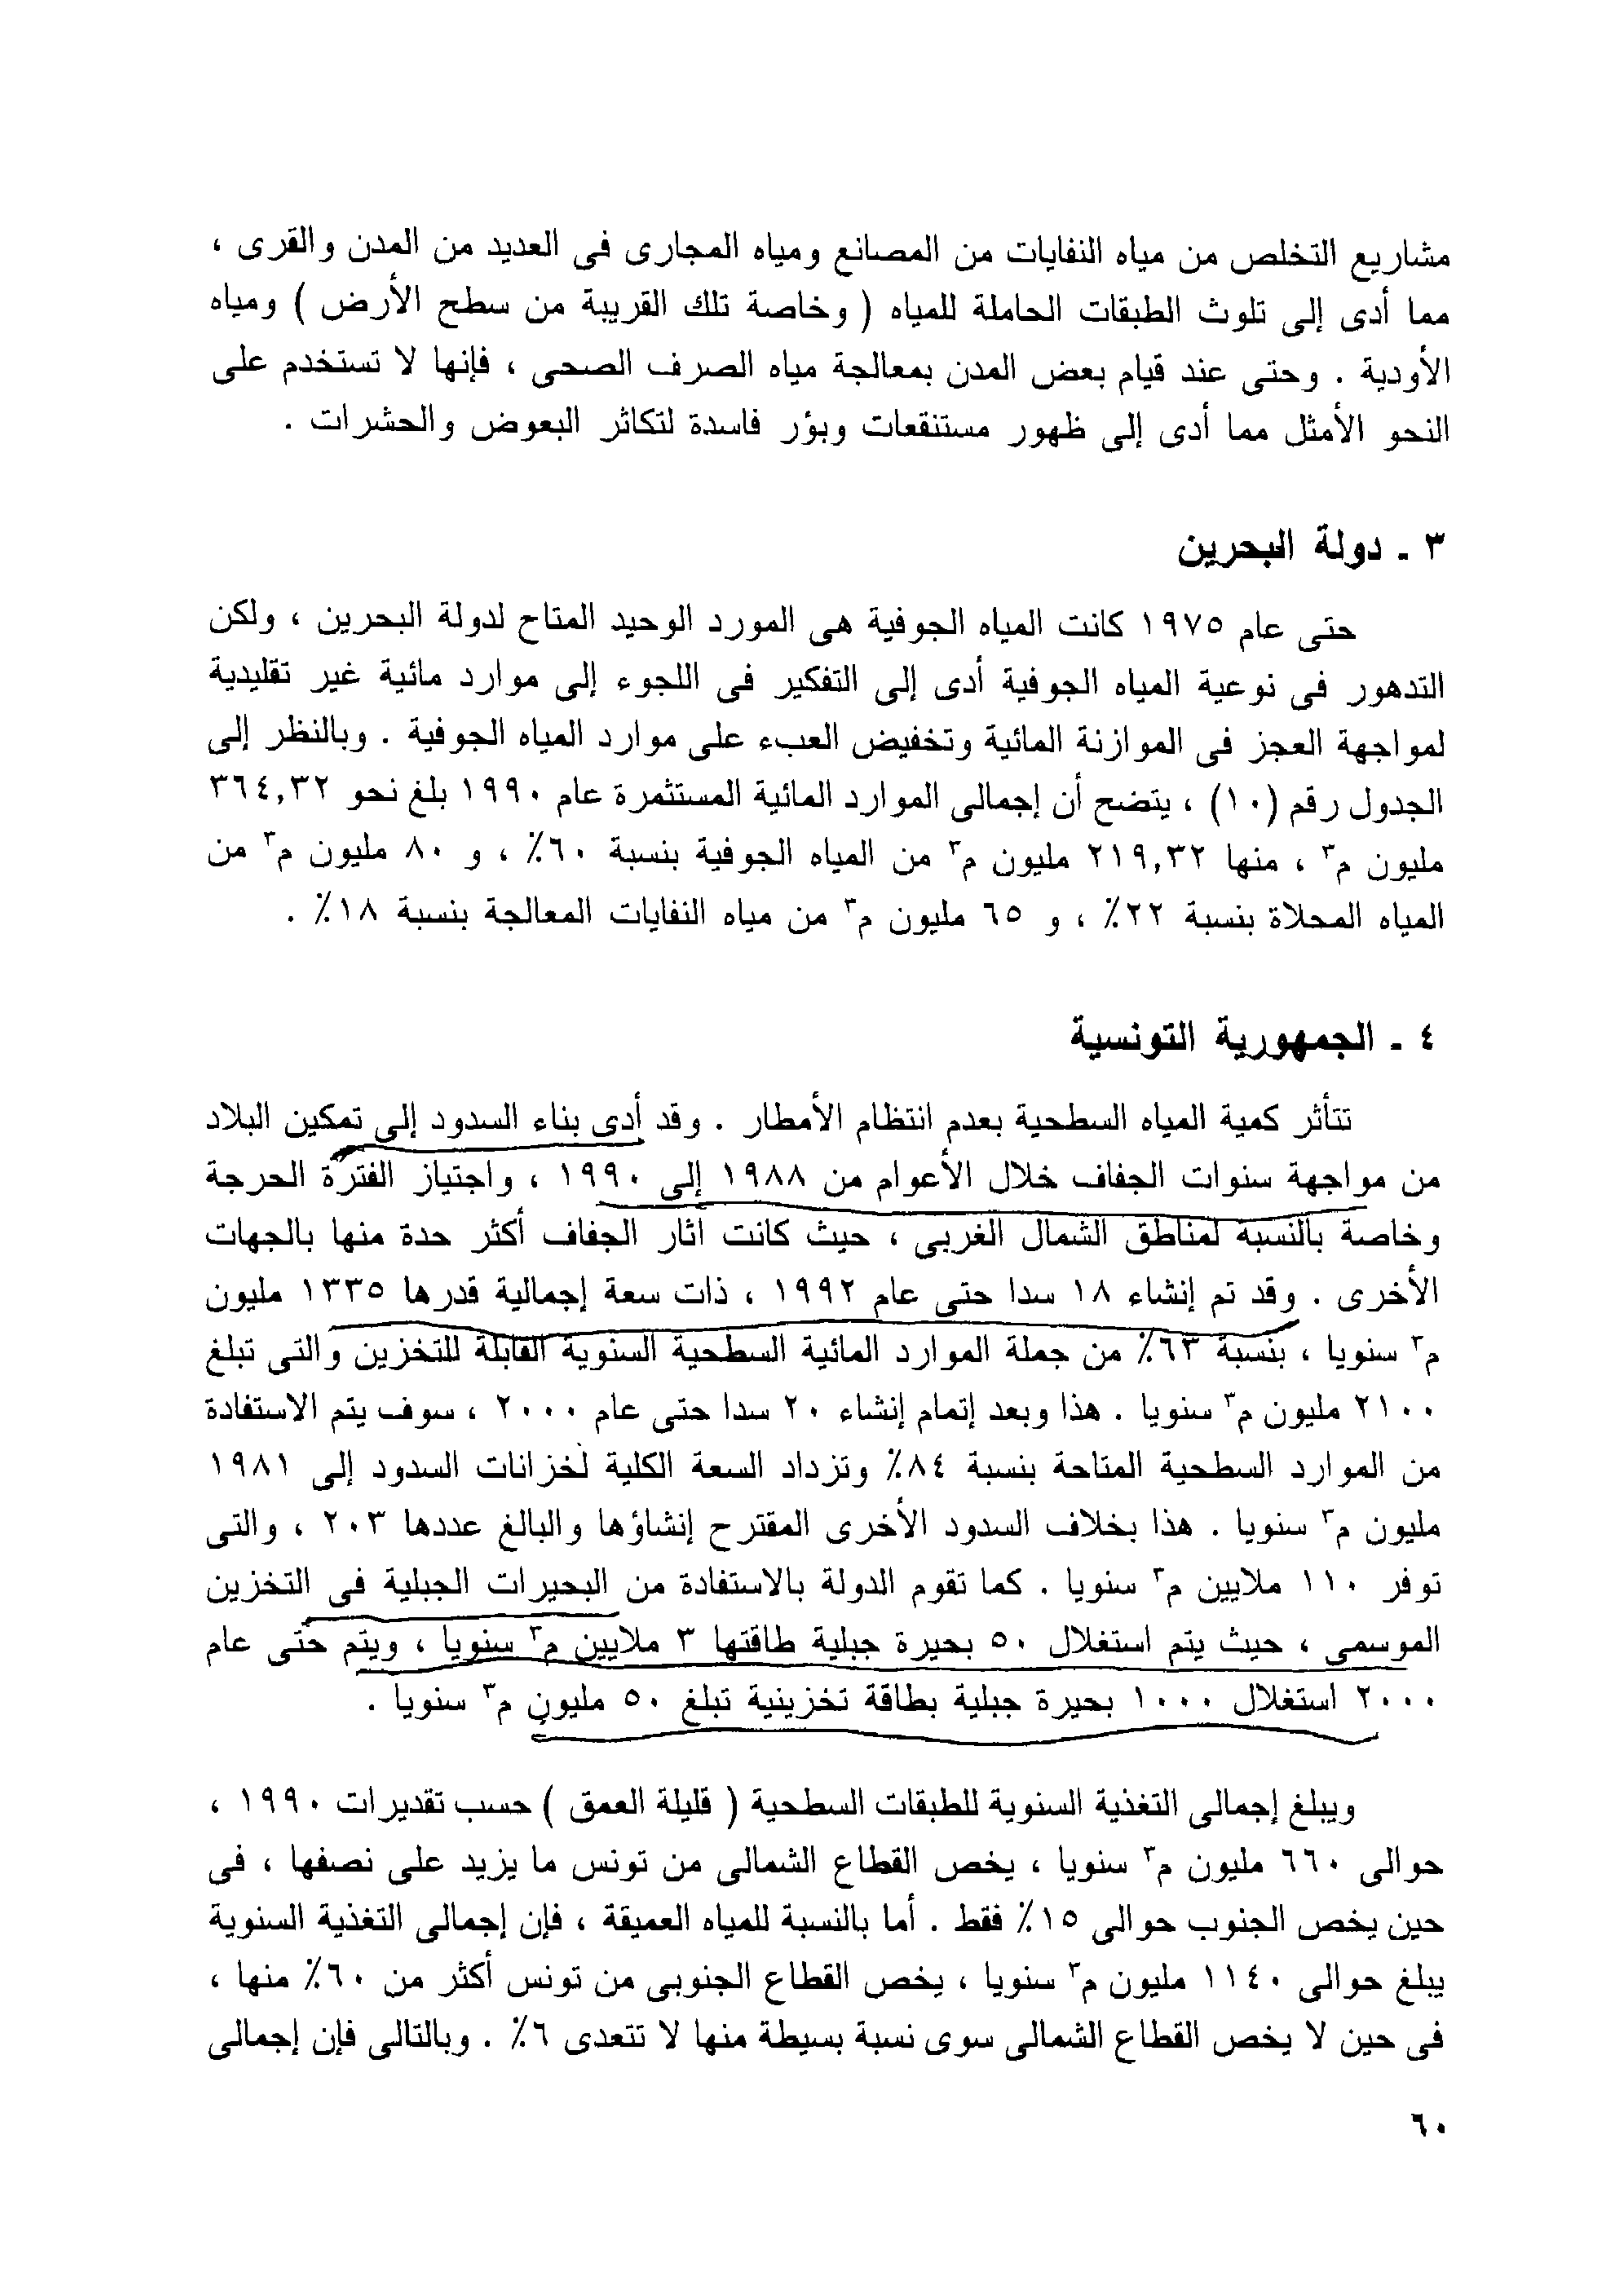 مشاريع التخلص من مياه النفايات من المصانع ومياه المجارى فى العديد من المدن والقرى ،
مما أدى إلى تلوث الطبقات الحاملة للمياه ( وخاصة تلك القريبة من سطح الأرض ) ومياه
الأودية . وحتى عند قيام بعض المدن بمعالجة مياه الصرف الصحى ، فإنها لا تستخدم على
النحو الأمثل مما أدى إلى ظهور مستنقعات وبؤر فاسدة لتكاثر البعوض والحشرات .
٣ - دولة البحرين
حتى عام ١٩٧٥ كانت المياه الجوفية هى المورد الوحيد المتاح لدولة البحرين ، ولكن
التدهور فى نوعية المياه الجوفية أدى إلى التفكير فى اللجوء إلى موارد مائية غير تقليدية
لمواجهة العجز فى الموازنة المائية وتخفيض العبء على موارد المياه الجوفية . وبالنظر إلى
الجدول رقم (١٠) ، يتضح أن إجمالى الموارد المائية المستثمرة عام ١٩٩٠ بلغ نحو ٣٦٤,٣٢
مليون م٣ ، منها ٢١٩,٣٢ مليون م٣ من المياه الجوفية بنسبة ٦٠٪ ، و ٨٠ مليون م٣ من
المياه المحلاة بنسبة ٢٢٪ ، و ٦٥ مليون م٣ من مياه النفايات المعالجة بنسبة ١٨٪ .
٤ - الجمهورية التونسية
تتأثر كمية المياه السطحية بعدم انتظام الأمطار . وقد أدى بناء السدود إلى تمكين البلاد
من مواجهة سنوات الجفاف خلال الأعوام من ١٩٨٨ إلى ١٩٩٠ ، واجتياز الفترة الحرجة
وخاصة بالنسبة لمناطق الشمال الغربى ، حيث كانت آثار الجفاف أكثر حدة منها بالجهات
الأخرى . وقد تم إنشاء ١٨ سدا حتى عام ١٩٩٢ ، ذات سعة إجمالية قدرها ١٣٣٥ مليون
م٣ سنويا ، بنسبة ٦٣٪ من جملة الموارد المائية السطحية السنوية القابلة للتخزين والتى تبلغ
٢١٠٠ مليون م٣ سنويا . هذا وبعد إتمام إنشاء ٢٠ سدا حتى عام ٢٠٠٠ ، سوف يتم الاستفادة
من الموارد السطحية المتاحة بنسبة ٨٤٪ وتزداد السعة الكلية لخزانات السدود إلى ١٩٨١
مليون م٣ سنويا . هذا بخلاف السدود الأخرى المقترح إنشاؤها والبالغ عددها ٢٠٣ ، والتى
توفر ١١٠ ملايين م٣ سنويا . كما تقوم الدولة بالاستفادة من البحيرات الجبلية فى التخزين
الموسمى ، حيث يتم استغلال ٥٠ بحيرة جبلية طاقتها ٣ ملايين م٣ سنويا ، ويتم حتى عام
٢٠٠٠ استغلال ١٠٠٠ بحيرة جبلية بطاقة تخزينية تبلغ ٥٠ مليون م٣ سنويا .
ويبلغ إجمالى التغذية السنوية للطبقات السطحية ( قليلة العمق ) حسب تقديرات ١٩٩٠ ،
حوالى ٦٦٠ مليون م٣ سنويا ، يخص القطاع الشمالى من تونس ما يزيد على نصفها ، فى
حين يخص الجنوب حوالى ١٥٪ فقط . أما بالنسبة للمياه العميقة ، فإن إجمالى التغذية السنوية
يبلغ حوالى ١١٤٠ مليون م٣ سنويا ، يخص القطاع الجنوبى من تونس أكثر من ٦٠٪ منها ،
فى حين لا يخص القطاع الشمالى سوى نسبة بسيطة منها لا تتعدى ٦٪ . وبالتالى فإن إجمالى
٦٠